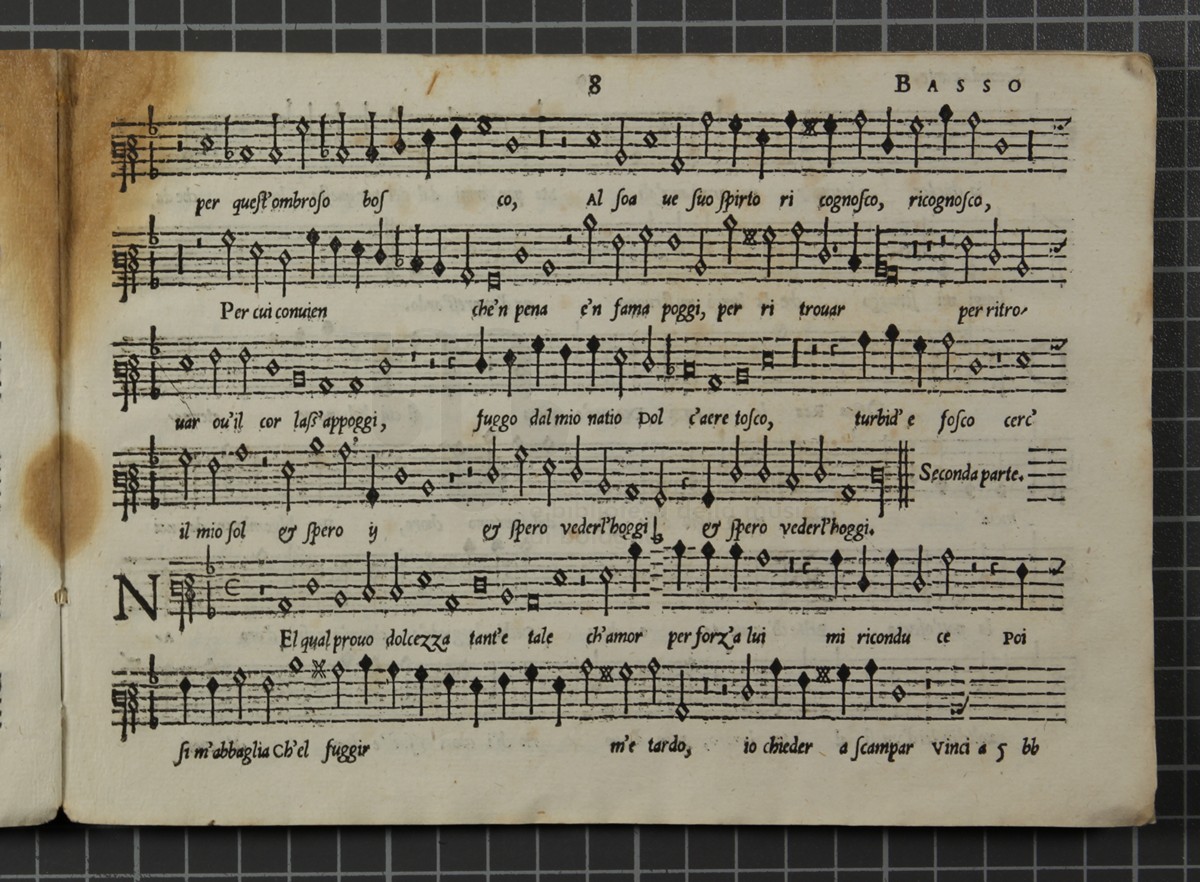 8 BASSO
per quest'ombroso bos co, Al soa ue suo spirto ri cognosco, ricognosco,
Per cui conuien che'n pena e'n fama poggi, per ri trouar per ritro-
uar ou'il cor lass'appoggi, fuggo dal mio natio Dol c'aere tosco, turbid' e fosco cerc'
il mio sol & spero ij & spero vederl'hoggi & spero vederl'hoggi.
Seconda parte.
NEl qual prouo dolcezza tant'e tale ch'amor per forz'a lui mi ricondu ce Poi
si m'abbaglia Ch'el fuggir m'e tardo, io chieder a scampar Vinci a 5 bb